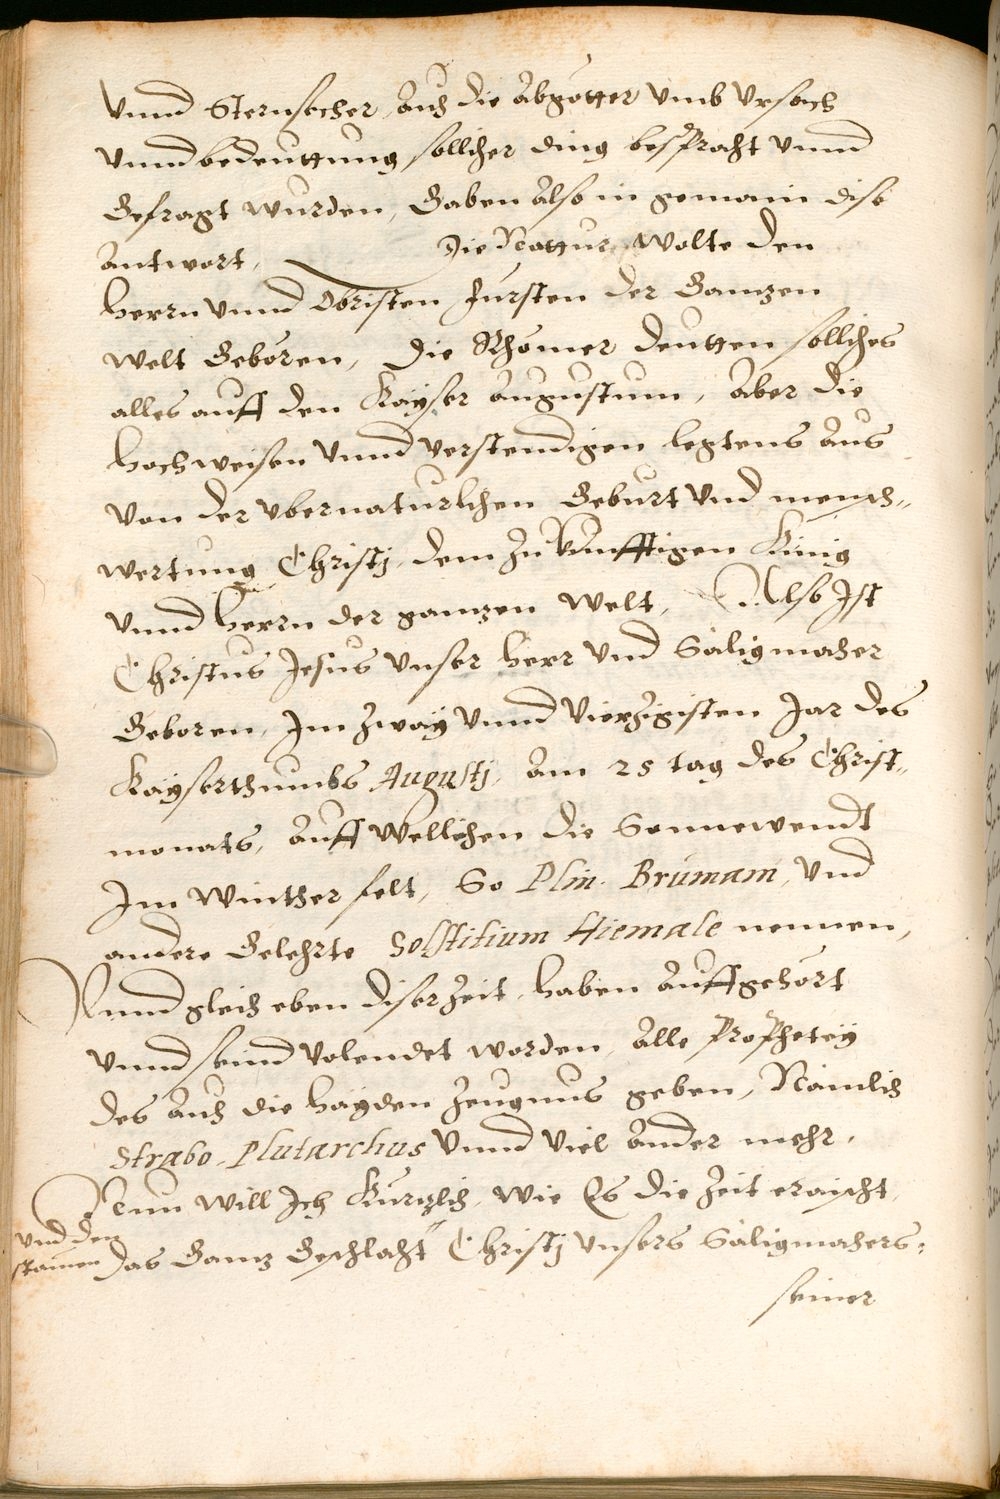 Vnnd Sternsecher, Auch die Abgötter Vmb Vrsach
Vnnd bedeuttung sollicher ding bespracht Vnnd
Gefragt wurden, Gaben Also in gemain dise
Antwort, Die Nattur Wolte den
Herrn Vnnd Obristen Fürsten der Ganzen
Welt Geboren, Die Rhömer deutten solliches
alles auff den Kayser Augustum, Aber die
Hochweisen Vnnd Verstendigen legtens Aus
Von der Vbernaturlichen Geburt Vnd mensch„
wertung Christj, dem Zukünfftigen Künig
Vnnd Herrn der ganzen Welt, Also Ist
Christus Jesus Vnser Herr Vnd Säligmacher
Geboren, Im Zway Vnnd Vierzigisten Jar des
Kayserthumbs Augustj, Am 25 tag des Christ„
monats, Auff Wellichen die Sonnewendt
Im Winther felt, So Plin. Brümam, Vnd
andere Gelehrte Solstitium Hiemale nennen,
Vnnd gleich eben diser Zeit, haben Auffgehört
Vnnd seind Volendet worden, Alle Prophetey
des Auch die Hayden Zeugnus geben, Nämlich
Strabo, Plutarchus Vnnd Viel Ander mehr,
Nun will Ich Kürzlich, Wie Es die Zeit eraischt,
Vnd den
stamen
das Ganz Geschlächt Christj Vnsers Säligmachers,
seiner